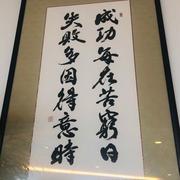 成功每在苦窮日
失敗多因得意時